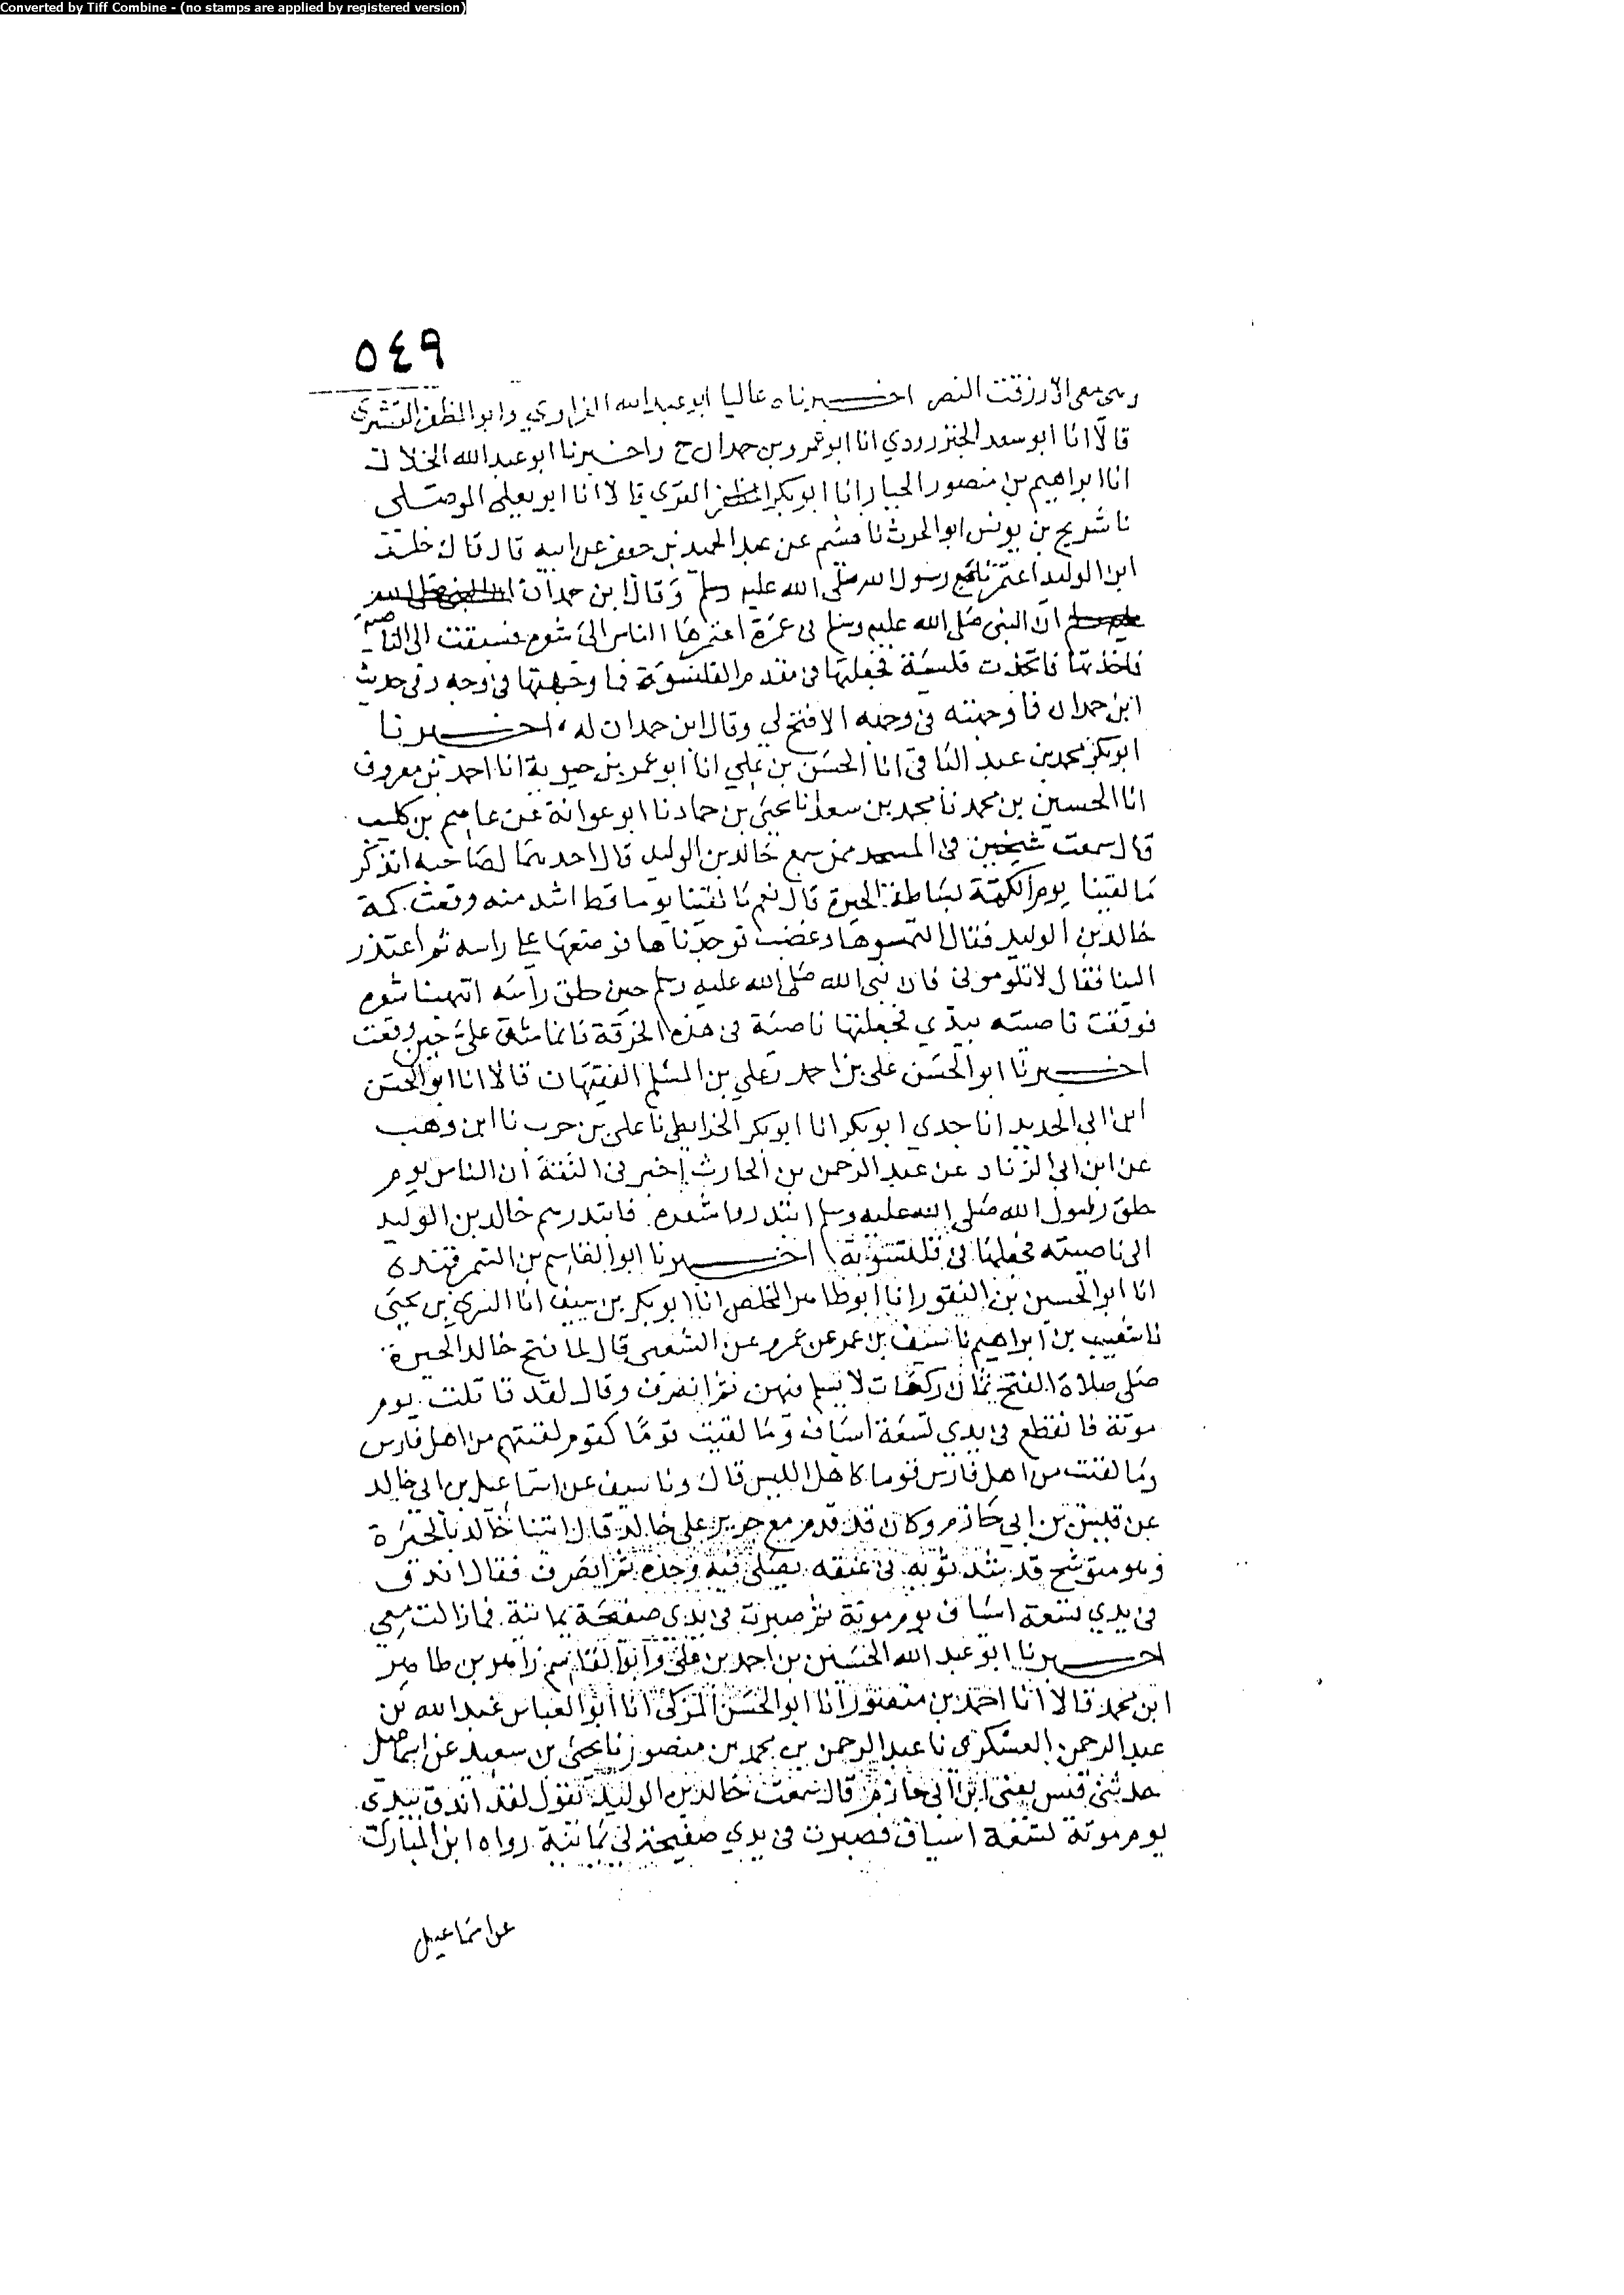 Converted by Tiff Combine - (no stamps are applied by registered version)
٥٤٩
وهي معي الا رزقت النصر اخبرناه عاليا ابو عبد الله الفراوي وابو المظفر القشيري
قالا انا ابو سعد الجنزرودي انا ابو عمرو بن حمدان ح واخبرنا ابو عبد الله الخلال
انا ابراهيم بن منصور الخباز انا ابو بكر المقري قالا انا ابو يعلى الموصلي
نا شريح بن يونس ابو الحرث نا هشيم عن عبد الحميد بن جعفر عن ابيه قال قال خالد
ابن الوليد اعتمرنا مع رسول الله صلى الله عليه وسلم وقال ابن حمدان
ان النبي صلى الله عليه وسلم في عمرة اعتمرها الناس الى شعره فسبقت الى الناصية
فاخذتها فاتخذت قلنسة فجعلتها في مقدم القلنسوة فما وجهتها في وجه وفي حديث
ابن حمدان فما وجهته في وجهه الا فتح لي وقال ابن حمدان له، اخبرنا
ابو بكر محمد بن عبد الباقي انا الحسن بن علي انا ابو عمر بن حيوية انا احمد بن معروف
انا الحسين بن محمد نا محمد بن سعد انا يحيى بن حماد نا ابو عوانة عن عاصم بن كليب
قال سمعت شيخين في المسجد ممن سمع خالد بن الوليد قال احدهما لصاحبه اتذكر
ما لقينا يوم الكمة بشاطئ الحيرة قال نعم ما لقينا يوما قط اشد منه وقعت كمة
خالد بن الوليد فقال التمسوها وغضب فوجدناها فوضعها على راسه ثم اعتذر
الينا فقال لا تلوموني فان نبي الله صلى الله عليه وسلم حين حلق راسه انتهبنا شعره
فوقعت ناصيته بيدي فجعلتها ناصية في هذه الخرقة فانما شق علي حين وقعت
اخبرنا ابو الحسن علي بن احمد وعلي بن المسلم الفقيهان قالا انا ابو الحسن
ابن ابي الحديد انا جدي ابو بكر انا ابو بكر الخرايطي نا علي بن حرب نا ابن وهب
عن ابن ابي الزناد عن عبد الرحمن بن الحارث اخبرني الثقة ان الناس يوم
حلق رسول الله صلى الله عليه وسلم ابتدروا شعره فابتدرهم خالد بن الوليد
الى ناصيته فجعلها في قلنسوته اخبرنا ابو القاسم بن السمرقندي
انا ابو الحسين بن النقور انا ابو طاهر المخلص انا ابو بكر بن سيف انا السري بن يحيى
نا شعيب بن ابراهيم نا سيف بن عمر عن عمرو عن الشعبي قال لما فتح خالد الحيرة
صلى صلاة الفتح ثمان ركعات لا يسلم فيهن ثم انصرف وقال لقد قاتلت يوم
موتة فانقطع في يدي تسعة اسياف وما لقيت قوما كقوم لقيتهم من اهل فارس
وما لقيت من اهل فارس قوما كاهل الليس قال ونا سيف عن اسماعيل بن ابي خالد
عن قيس بن ابي حازم وكان قد قدم مع جرير على خالد قال اتينا خالد بالحيرة
وهو متوشح قد شد ثوبه في عنقه يصلي فيه وحده ثم انصرف فقال اندق
في يدي تسعة اسياف يوم موتة ثم صبرت في يدي صفيحة يمانية فما زالت معي
اخبرنا ابو عبد الله الحسين بن احمد بن علي وابو القاسم زاهر بن طاهر
ابن محمد قالا انا احمد بن منصور انا ابو الحسن المزكي انا ابو العباس عبد الله بن
عبد الرحمن العسكري نا عبد الرحمن بن محمد بن منصور نا يحيى بن سعيد عن اسماعيل
حدثني قيس يعني ابن ابي حازم قال سمعت خالد بن الوليد يقول لقد اندق بيدي
يوم موتة تسعة اسياف فصبرت في يدي صفيحة لي يمانية رواه ابن المبارك
عن اسماعيل